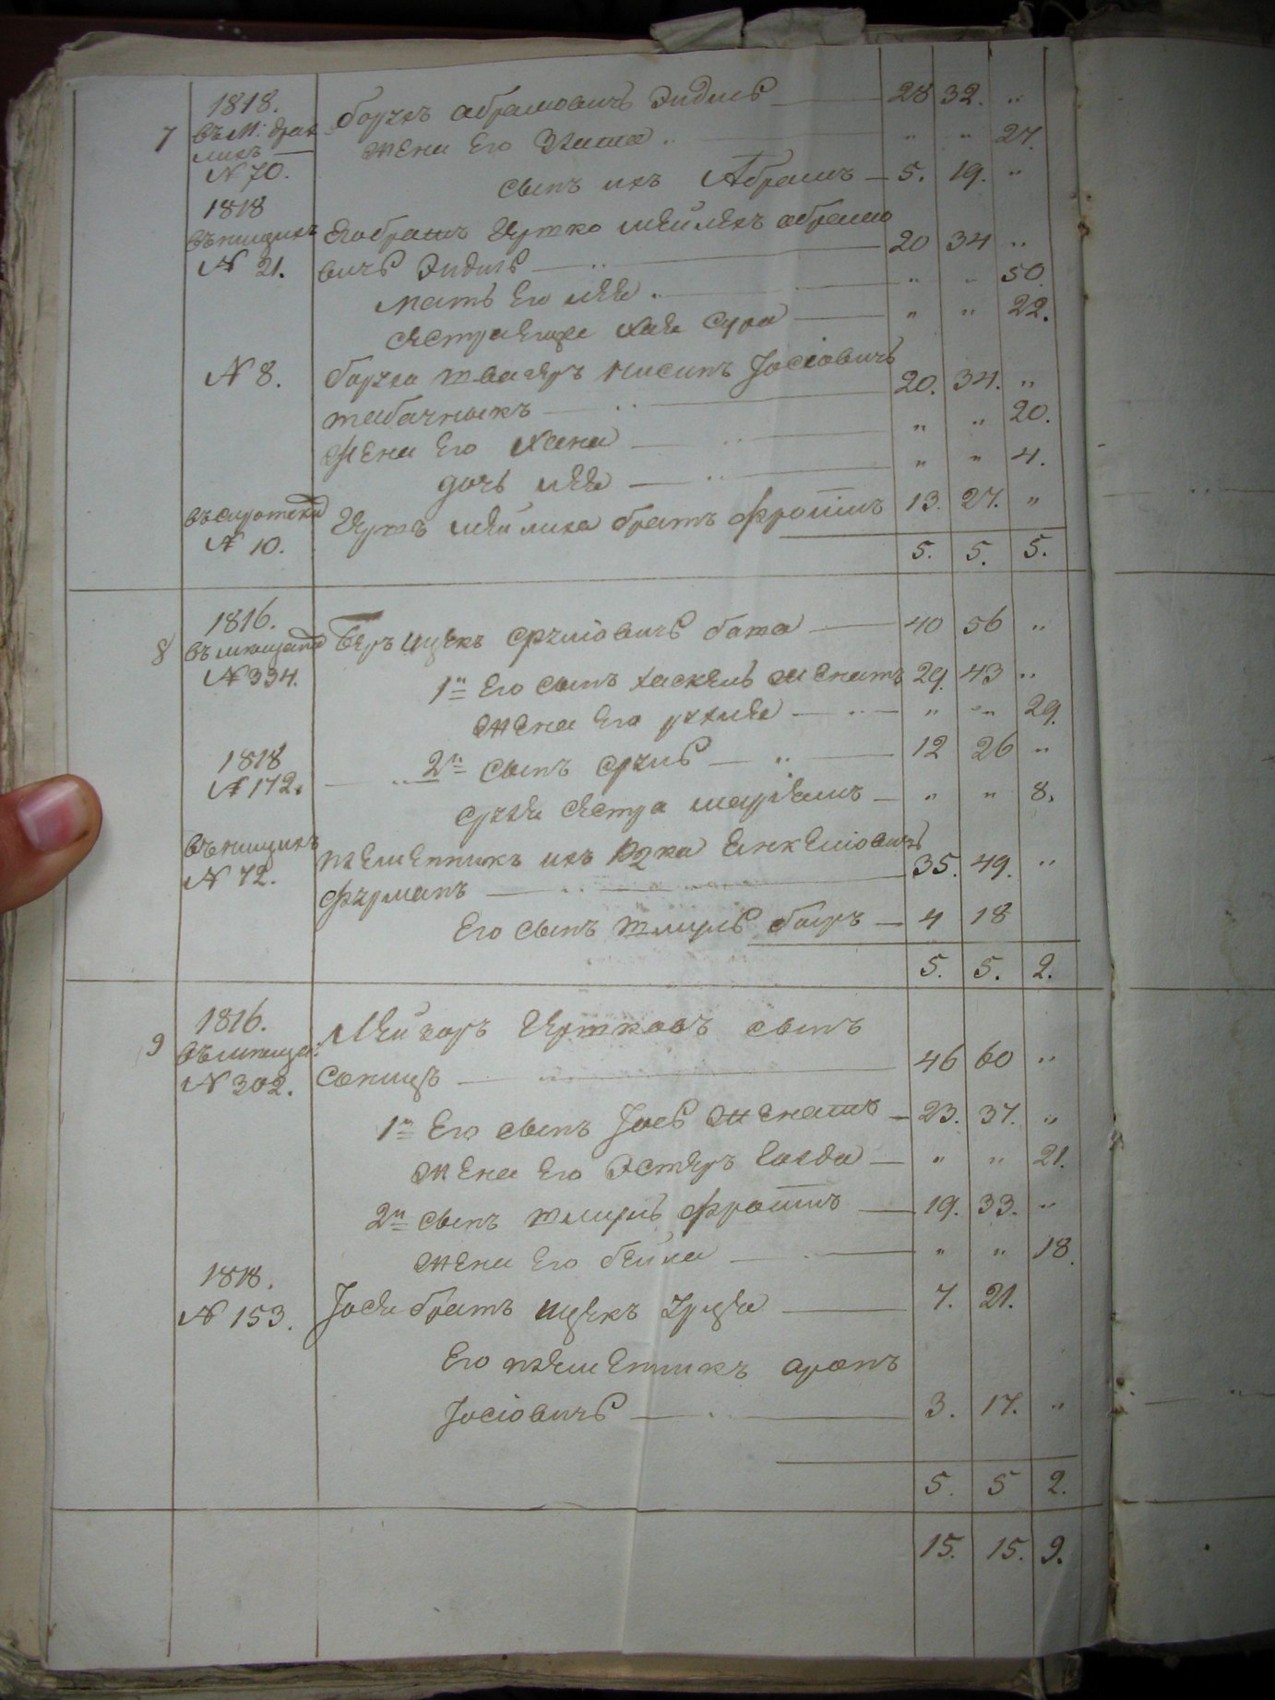 7
1818.
въ м: Драж
лихъ —
№ 70.
Борухъ Абрамовичъ Эидисъ — 28 32. „
жена его Злата .. — „ „ 27.
сынъ ихъ Абрамъ — 5. 19. „
1818
въ нищихъ
№ 21.
Его братъ Гертко Мейлехъ Абрамо
вичъ Эидисъ — 20 34 „
мать его Лея — „ „ 50.
сестра еще Хая Сура — „ „ 22.
№ 8.
Боруха швагеръ Нисинъ Iосiовичъ
табачныкъ — 20. 34. „
жена его Хана — „ „ 20.
дочь Лея — „ „ 4.
въ сиротеха
№ 10.
Герть Мейлиха братъ Фроимъ 13. 27. „
5. 5. 5.
8
1816.
въ мещана
№ 334.
Беръ Ицекъ Срулiовичъ — 40 56 „
1й его сынъ Хаскель женатъ 29. 43 „
жена его Рухля — „ „ 29.
1818
№ 172.
2й сынъ Сруль — „ 12 26 „
Сруля сестра Марiямъ — „ „ 8.
въ нищихъ
№ 72.
племенникъ ихъ Янкелiовичъ
Фурманъ — 35. 49. „
его сынъ Шмуль Боѣръ — 4 18
5. 5. 2.
9
1816.
въ мещан:
№ 302.
Мейхоръ Гертковъ сынъ
— 46 60 „
1й его сынъ Iось женатъ — 23. 37. „
жена его Эстеръ Голда — „ „ 21.
2й сынъ Шмуль Фроимъ — 19. 33. „
жена его Бейла — „ „ 18.
1818.
№ 153.
Iося братъ Ицекъ — 7. 21.
его племенникъ Аронъ
Iосiовичъ — 3. 17. „
5. 5 2.
15. 15. 9.